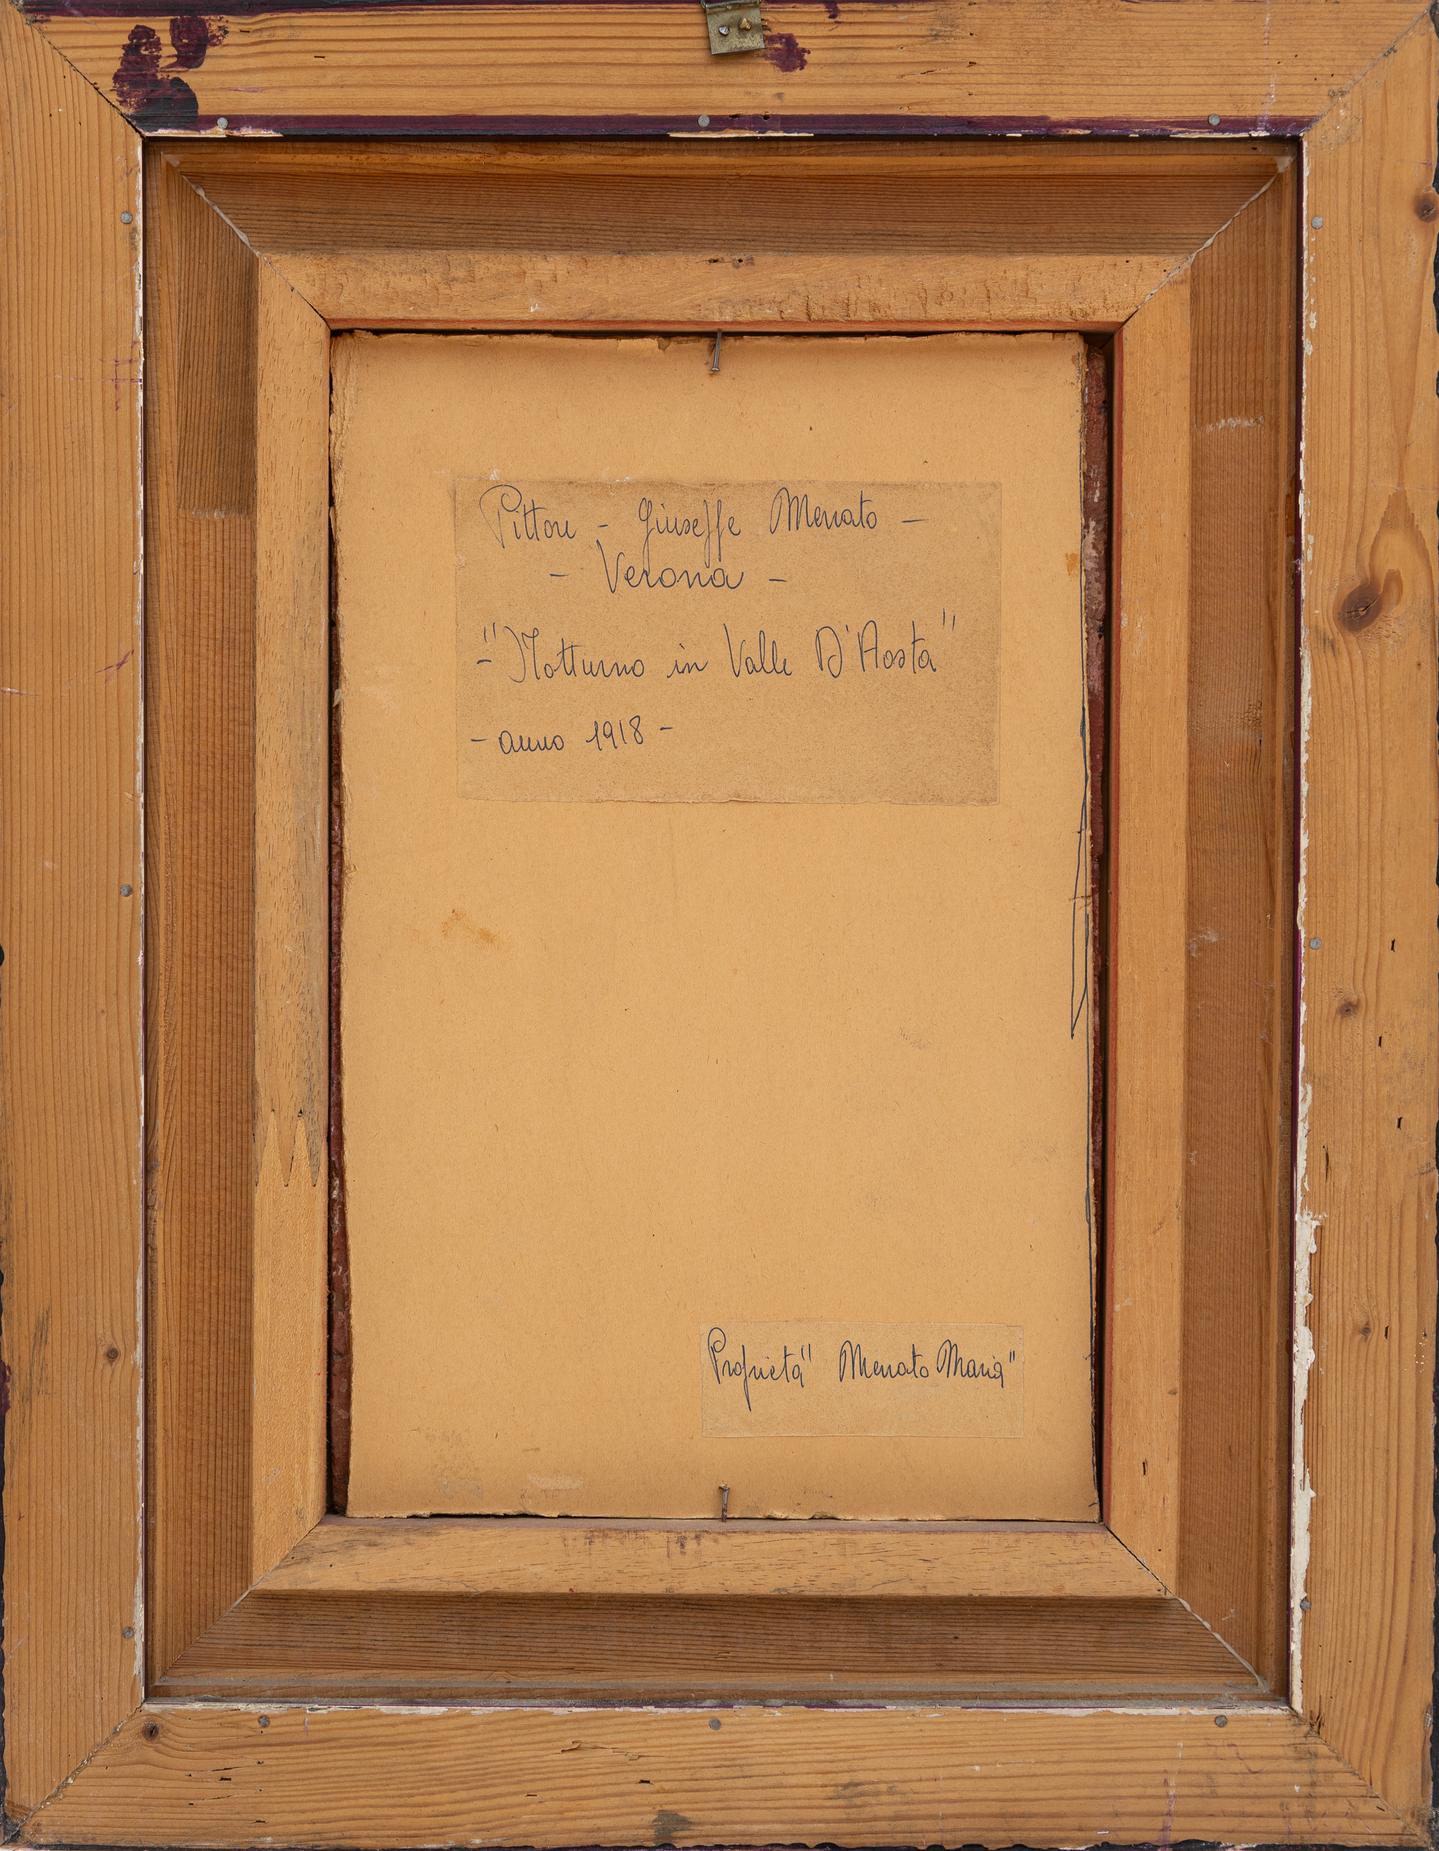 Pittore - Giuseppe Menato -
- Verona -
- "Notturno in Valle D'Aosta"
- anno 1918 -
Proprietà "Menato Maria"